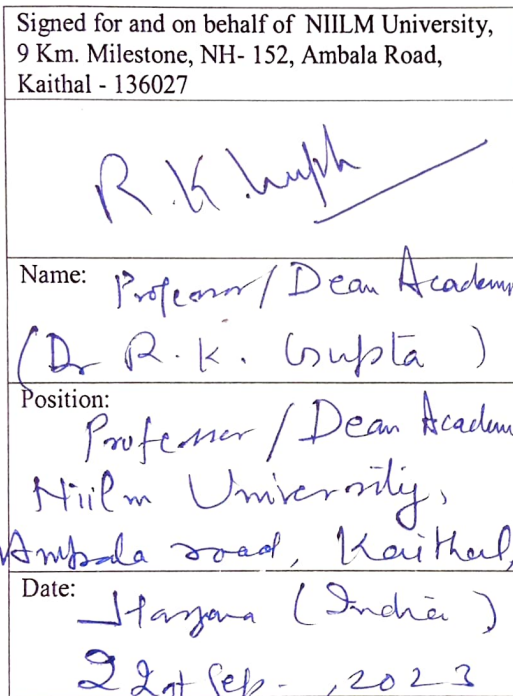 Signed for and on behalf of NIILM University,
9 Km. Milestone, NH- 152, Ambala Road,
Kaithal - 136027
R.K. Gupta
Name: Professor/Dean Academ
(Dr R.K. Gupta)
Position:
Professor/Dean Academ
Niilm University,
Ambala road, Kaithal,
Date: Haryana (India)
22nd Sep-, 2023